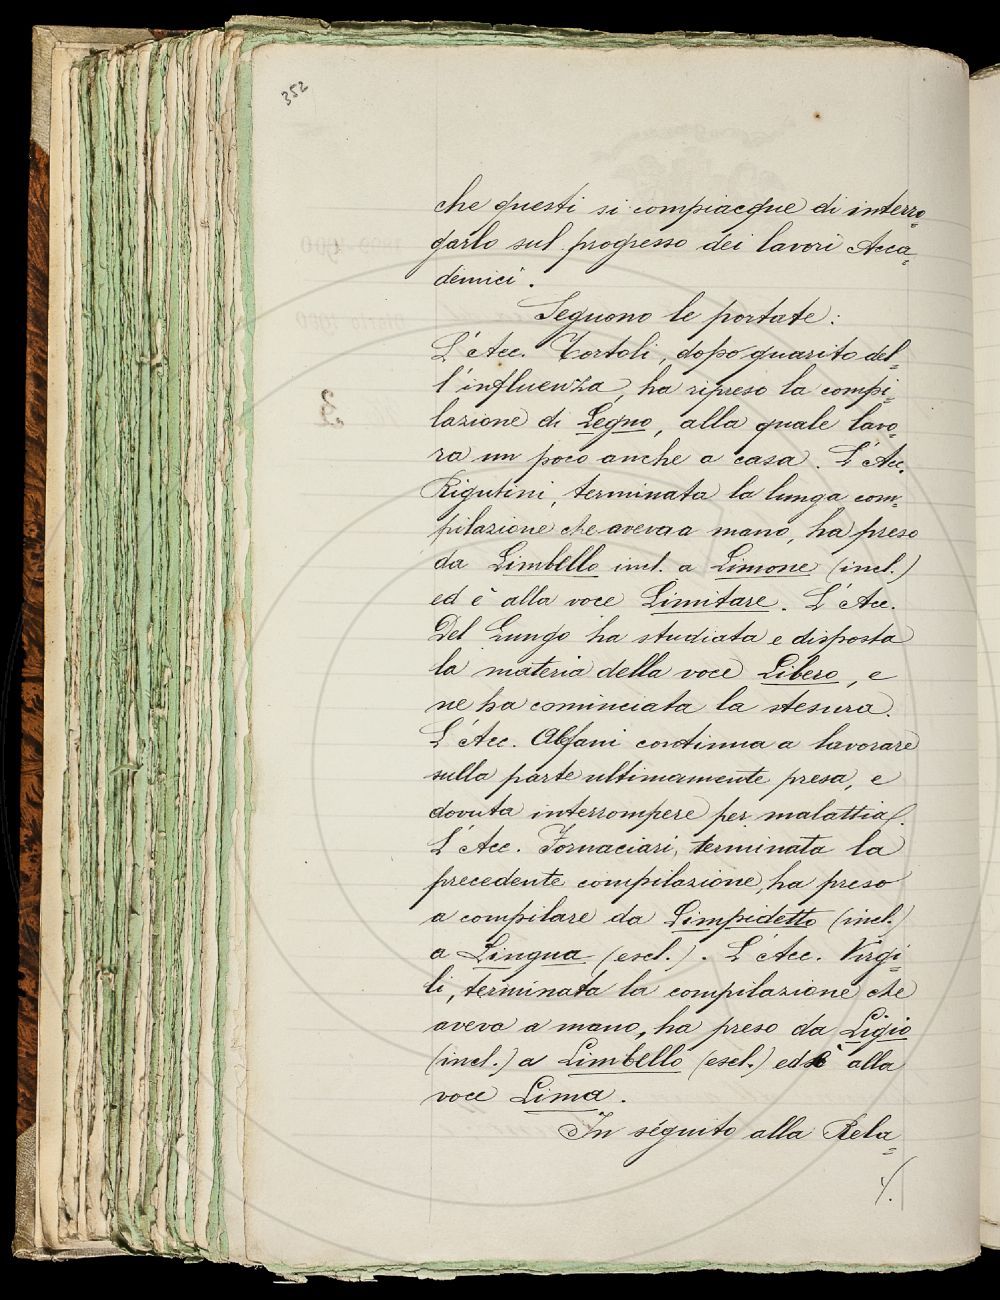 352
che questi si compiacque di interro=
garlo sul progresso dei lavori Acca=
demici.
Seguono le portate:
L'Acc. Tortoli, dopo guarito del=
l'influenza, ha ripreso la compi=
lazione di Legno, alla quale lavo=
ra un poco anche a casa. L'Acc.
Rigutini, terminata la lunga com=
pilazione che aveva a mano, ha preso
da Limbello incl. a Limone (incl.)
ed è alla voce Limitare. L'Acc.
Del Lungo ha studiata e disposta
la materia della voce Libero, e
ne ha cominciata la stesura.
L'Acc. Alfani continua a lavorare
sulla parte ultimamente presa, e
dovuta interrompere per malattia.
L'Acc. Fornaciari, terminata la
precedente compilazione, ha preso
a compilare da Limpidetto (incl.)
a Lingua (escl.). L'Acc. Virgi=
li, terminata la compilazione che
aveva a mano, ha preso da Ligio
(incl.) a Limbello (escl.) ed è alla
voce Lima.
In séguito alla Rela=
./.